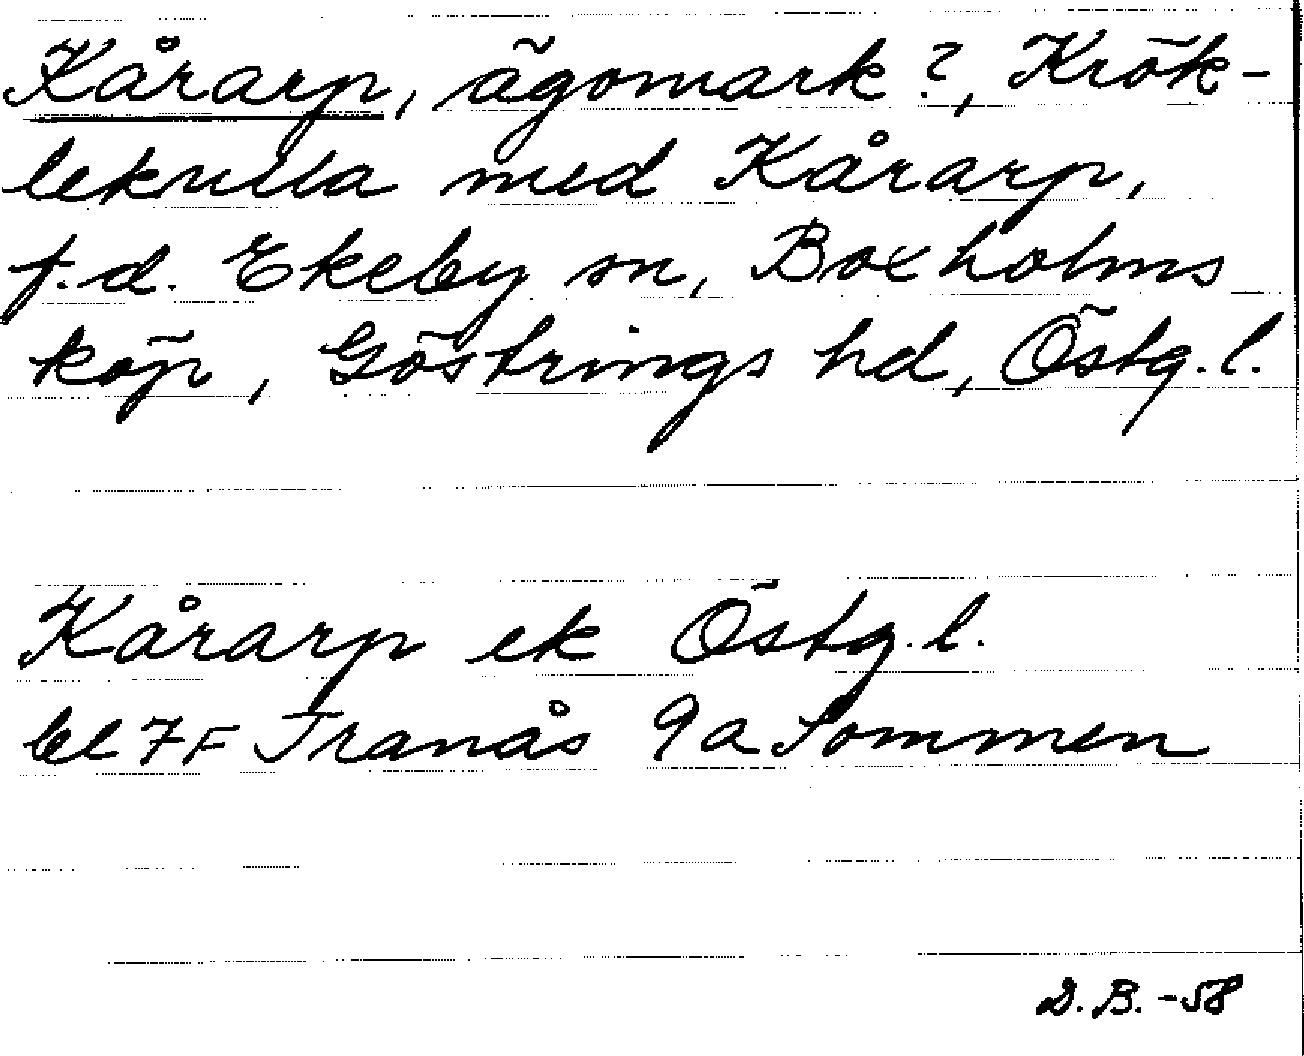 Kårarp, ägomark?, Krök-
lekulla med Kårarp,
f.d. Ekeby sn, Boxholms
köp, Göstrings hd, Östg.l.
Kårarp ek Östg.l.
bl 7F Tranås 9a Sommen
D.B. -58